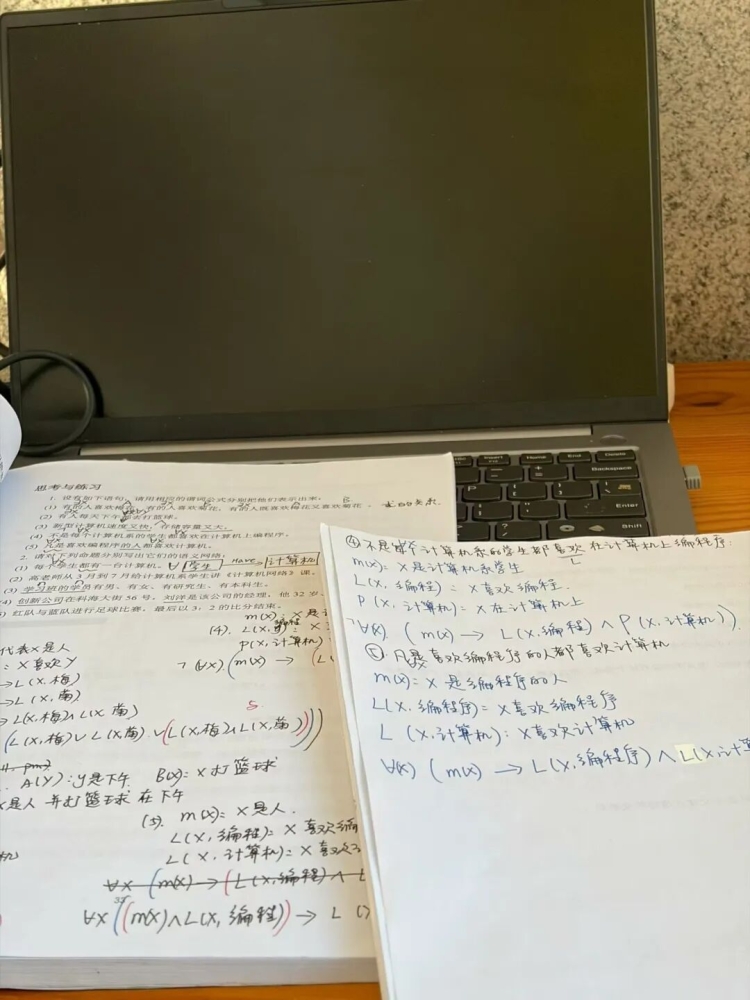 思考与练习
1. 设有如下语句，请用相应的谓词公式分别把他们表示出来：
(1) 有的人喜欢梅花，有的人喜欢菊花，有的人既喜欢梅花又喜欢菊花。
(2) 有人每天下午都去打篮球。
(3) 新型计算机速度又快，存储容量又大。
(4) 不是每个计算机系的学生都喜欢在计算机上编程序。
(5) 凡是喜欢编程序的人都喜欢计算机。
2. 请对下列命题分别写出它们的语义网络：
(1) 每个学生都有一台计算机。 ∀ 学生 Have 计算机
(2) 高老师从3月到7月给计算机系学生讲《计算机网络》课。
(3) 学习班的学员有男、有女、有研究生、有本科生。
(4) 创新公司在科海大街56号，刘洋是该公司的经理，他32岁、
红队与蓝队进行足球比赛，最后以3：2的比分结束。
m(x): x是
(4). L(x, 编程): x
P(x, 计算机)
ㄱ∀(x) (m(x) → (L
代表x是人
: x喜欢y
→L(x, 梅)
→L(x, 菊)
→L(x,梅)∧L(x,菊)
(L(x,梅)∨L(x,菊)∨(L(x,梅)∧L(x,菊))))
5
A(y): y是下午 B(x): x打篮球
x是人并打篮球在下午
(5). m(x): x是人.
L(x, 编程): x喜欢编
L(x, 计算机): x喜欢
∀x (m(x)→(L(x,编程)∧L
∀x((m(x)∧L(x,编程))→L(
④不是每个计算机系的学生都喜欢在计算机上编程序:
L
m(x): x是计算机系学生
L(x, 编程): x喜欢编程.
P(x, 计算机): x在计算机上
ㄱ∀(x) (m(x) → L(x,编程)∧P(x,计算机))
⑤凡是喜欢编程序的人都喜欢计算机
m(x): x是编程序的人
L(x,编程序)= x喜欢编程序
L(x,计算机): x喜欢计算机
∀(x) (m(x) → L(x,编程序)∧L(x,计算
Home
End
Delete
Backspace
Enter
Shift